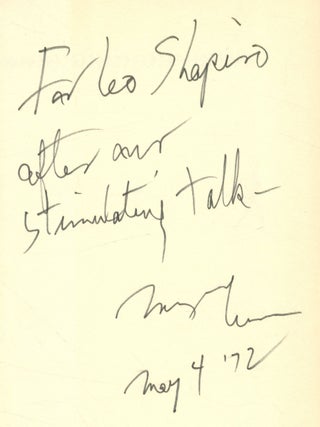 For Leo Shapiro
after our
stimulating talk—
May 4 '72